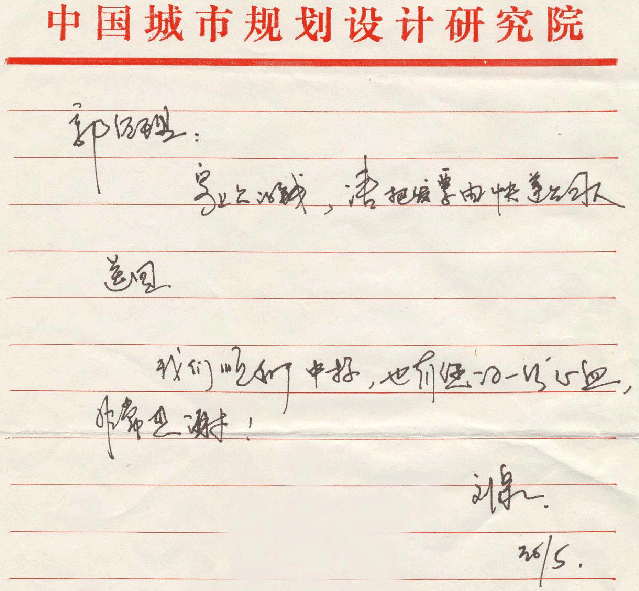 中国城市规划设计研究院
郭经理：
寄上的钱，请把发票由快递公司人
送回
我们顺利中标，也有您的一份心血，
非常感谢！
刘泉
26/5.